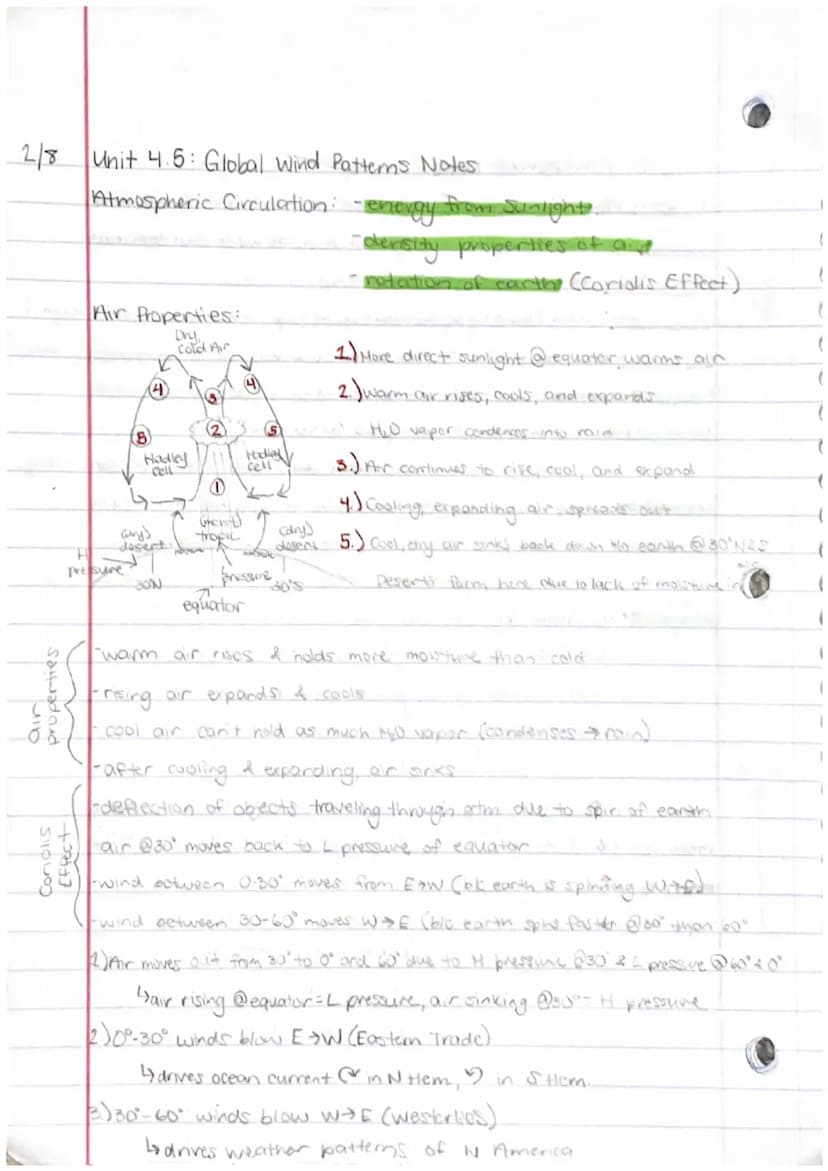 2/8 Unit 4.5: Global Wind Patterns Notes
Atmospheric Circulation: - energy from sunlight
- density properties of air
- rotation of earth (Coriolis Effect)
Air Properties:
Dry, Cold Air
4 4
3
2
5 5
Hadley cell
Hadley cell
1
(moist) tropic
(dry) desert
(dry) desert
H pressure
pressure
30N
30°S
equator
1.) More direct sunlight @ equator warms air
2.) Warm air rises, cools, and expands
H₂O vapor condenses into rain
3.) Air continues to rise, cool, and expand
4.) Cooling, expanding air spreads out
5.) Cool, dry air sinks back down to earth @ 30°N&S
Deserts form here due to lack of moisture in air
air properties
- warm air rises & holds more moisture than cold
- rising air expands & cools
- cool air can't hold as much H₂O vapor (condenses → rain)
- after cooling & expanding, air sinks
Coriolis Effect
- deflection of objects traveling through atm due to spin of earth
- air @30° moves back to L pressure of equator
- wind between 0-30° moves from E→W (bk earth is spinning W→E)
- wind between 30-60° moves W→E (b/c earth spins faster @ than 60°
1) Air moves out from 30° to 0° and 60° due to H pressure @30° & L pressure @60° & 0°
↳ air rising @equator = L pressure, air sinking @30° = H pressure
2) 0°-30° winds blow E→W (Eastern Trade)
↳ drives ocean current ↻ in N Hem, ↺ in S Hem.
3) 30°-60° winds blow W→E (Westerlies)
↳ drives weather patterns of N America